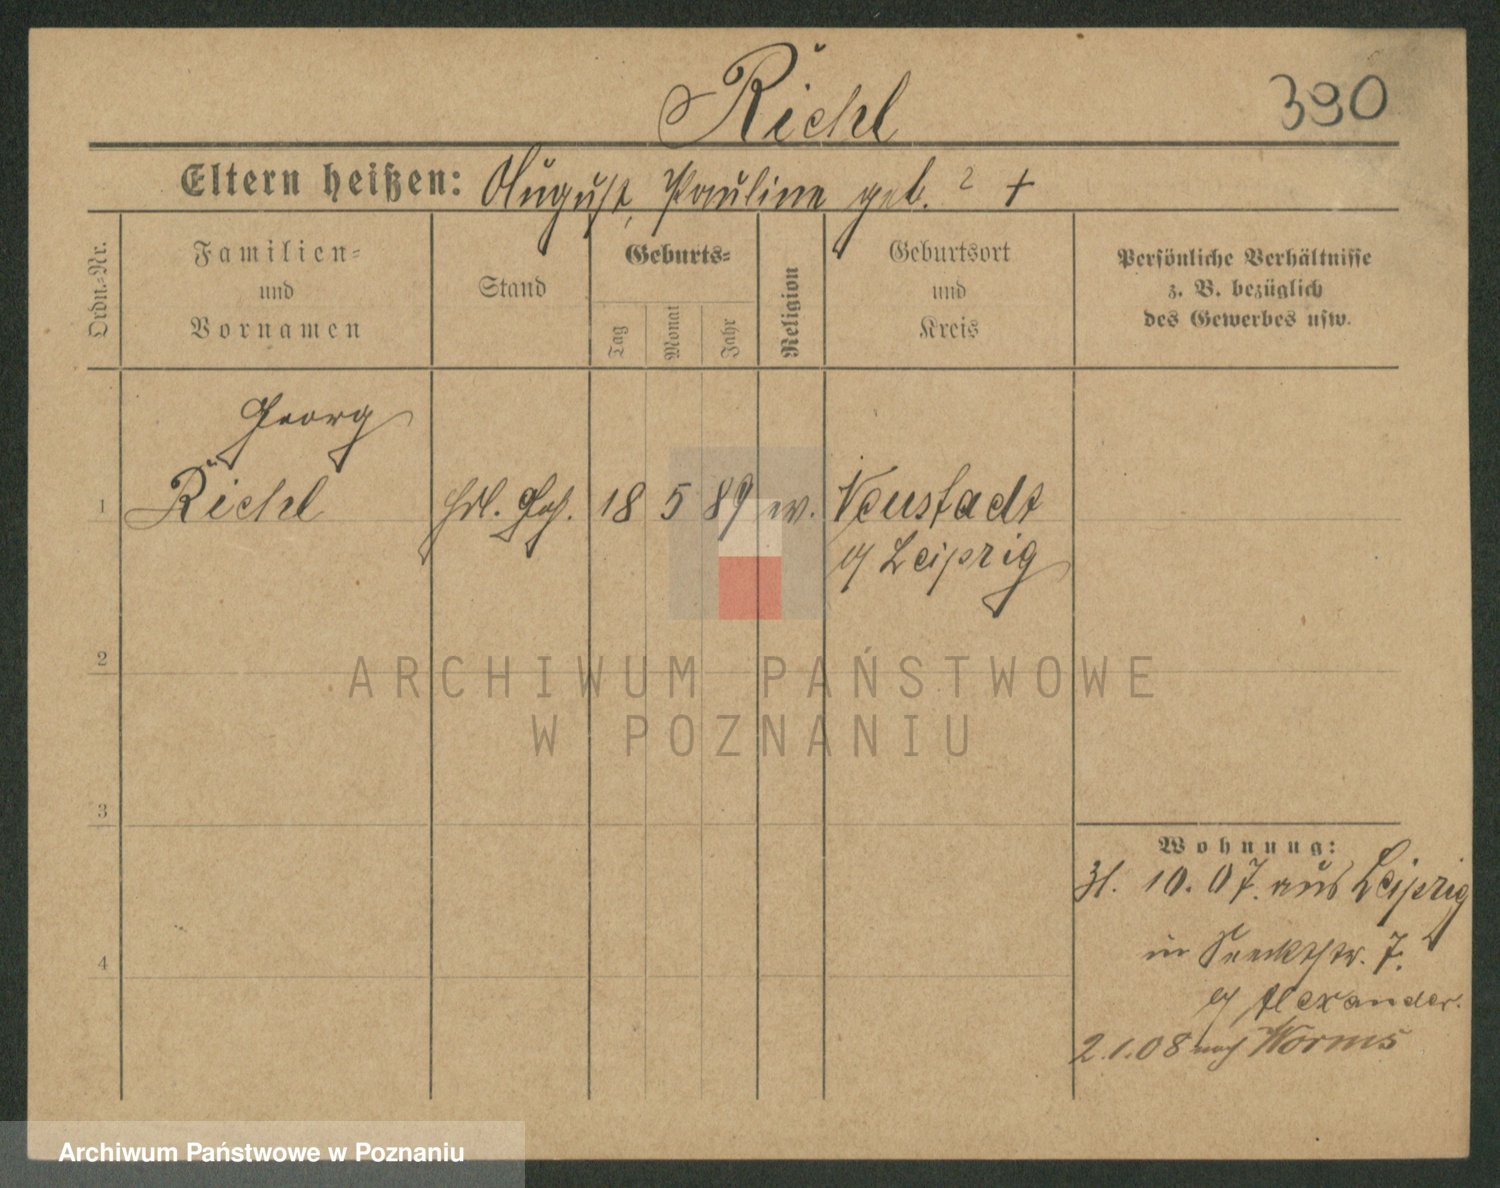 Riehl
390
Eltern heißen: August, Pauline geb. ? +
Ordn.-Nr.
Familien-
und
Vornamen
Stand
Geburts-
Tag
Monat
Jahr
Religion
Geburtsort
und
Kreis
Persönliche Verhältnisse
z. B. bezüglich
des Gewerbes usw.
Georg
1 Riehl Hdl. Geh. 18 5 89 ev. Neustadt
b/ Leipzig
2
ARCHIWUM PAŃSTWOWE
W POZNANIU
3
Wohnung:
31. 10. 07. aus Leipzig
in 7.
b/ Alexander.
4
2.1.08 nach Worms
Archiwum Państwowe w Poznaniu